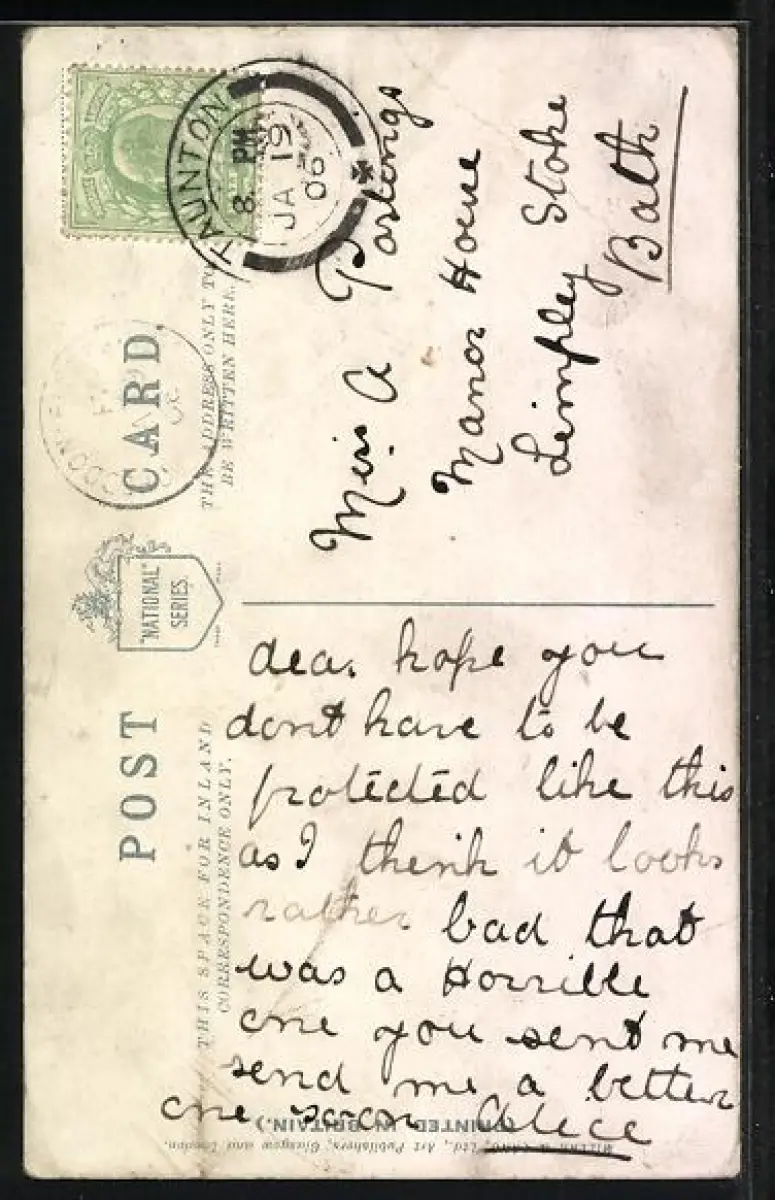 POST CARD.
"NATIONAL" SERIES.
THIS SPACE FOR INLAND
CORRESPONDENCE ONLY.
THE ADDRESS ONLY TO
BE WRITTEN HERE.
TAUNTON
8. PM
JA 19
06
Miss A
Manor House
Limpley Stoke
Bath
dear hope you
dont have to be
protected like this
as I think it looks
rather bad that
was a Horrible
one you sent me
send me a better
one soon Alice
Art Publishers, Glasgow and London.
(PRINTED IN BRITAIN.)